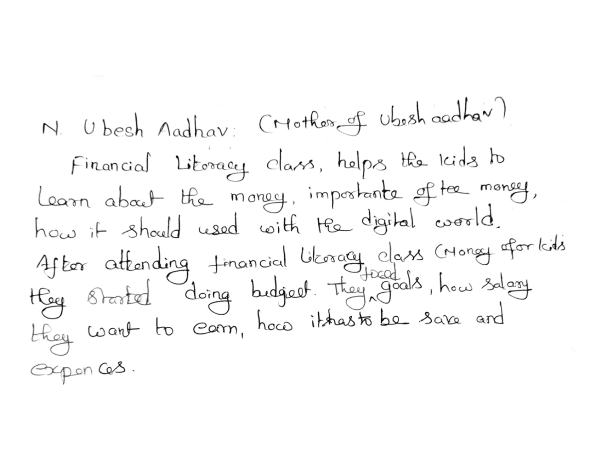 N. Ubesh Aadhav: (Mother of Ubesh aadhav)
Financial Literacy class, helps the kids to
Learn about the money, importante of tee money,
how it should used with the digital world.
After attending financial literacy class (Money for kids
they started doing budgeet. They fixed goals, how salary
they want to earn, how it has to be save and
expences.